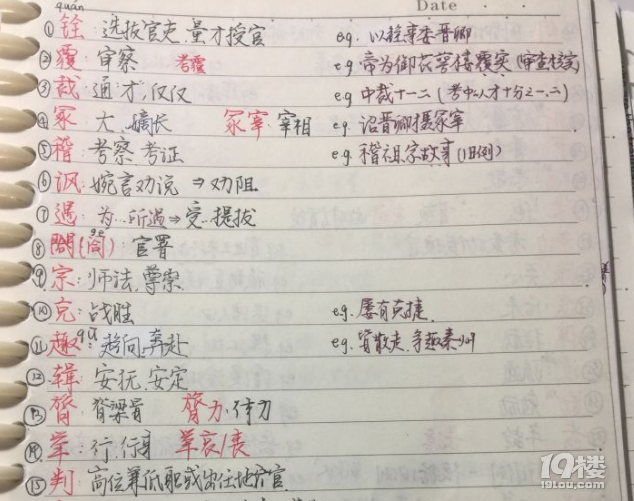 quán Date
①铨：选拔官吏,量才授官 eg. 以铨事委晋卿
②覆：审察 考覆 eg. 帝为御花萼楼覆实(审查核实)
③裁：通"才",仅仅 eg 中裁十一二(考中人才十分之一、二)
④冢：大、嫡长 冢宰 宰相 eg 诏晋卿摄冢宰
⑤稽：考察,考证 eg. 稽祖宗故事(旧例)
⑥讽：婉言劝说 ⇒劝阻
⑦遇：为…所遇⇒受…提拔
⑧閤(阁)gé：官署
⑨宗：师法,尊崇
⑩克：战胜 eg. 屡有克捷
⑪趣qū：趋向,奔赴 eg. 皆散走,争趣秦州
⑫辑：安抚,安定
⑬膂：脊梁骨 膂力：体力
⑭举：行,行事 举哀/丧
⑮判：高位兼低职或出任地方官
19楼
19lou.com